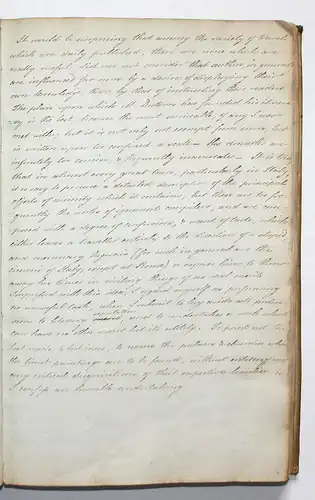 It would be surprising that among the variety of travels
which are daily published, there are none which are
really useful did we not consider that authors in general
are influenced far more by a desire of displaying their
own knowledge than by that of instructing their readers
The plan upon which M. has founded his itinera
ry is the best, because the most universal, of any I ever
met with, but it is not only not exempt from error, but
is written upon too confined a scale — his remarks are
infinitely too concise, & frequently inaccurate — It is true
that in almost every great town, particularly in Italy,
it is easy to procure a detailed description of the principal
objects of curiosity which it contains, but these are too fre
quently the works of ignorant compilers, and are com
posed with a degree of confusion, & want of taste, which
either leave a traveller entirely to the direction of a stupid
and mercenary (for such in general are the
of Italy, except at Rome) or expose him to throw
away his time in visiting things of no real merit
Impressed with this idea, I regard myself as performing
no unuseful task, when I submit to lay aside all preten
sion to literary merit to undertake a work which
can have no other merit but its utility. To point out the
best roads, & best inns, to name the palaces & churches where
the finest paintings are to be found, without entering into
any critical disquisitions of their respective beauties is
I confess an humble undertaking